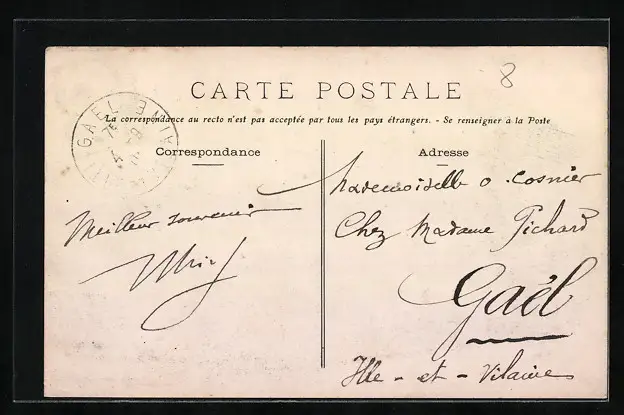 8
CARTE POSTALE
La correspondance au recto n'est pas acceptée par tous les pays étrangers. - Se renseigner à la Poste
GAEL
Correspondance
Meilleur souvenir
Adresse
Mademoiselle O Cosnier
Chez Madame Pichard
Gaël
Ille-et-Vilaine